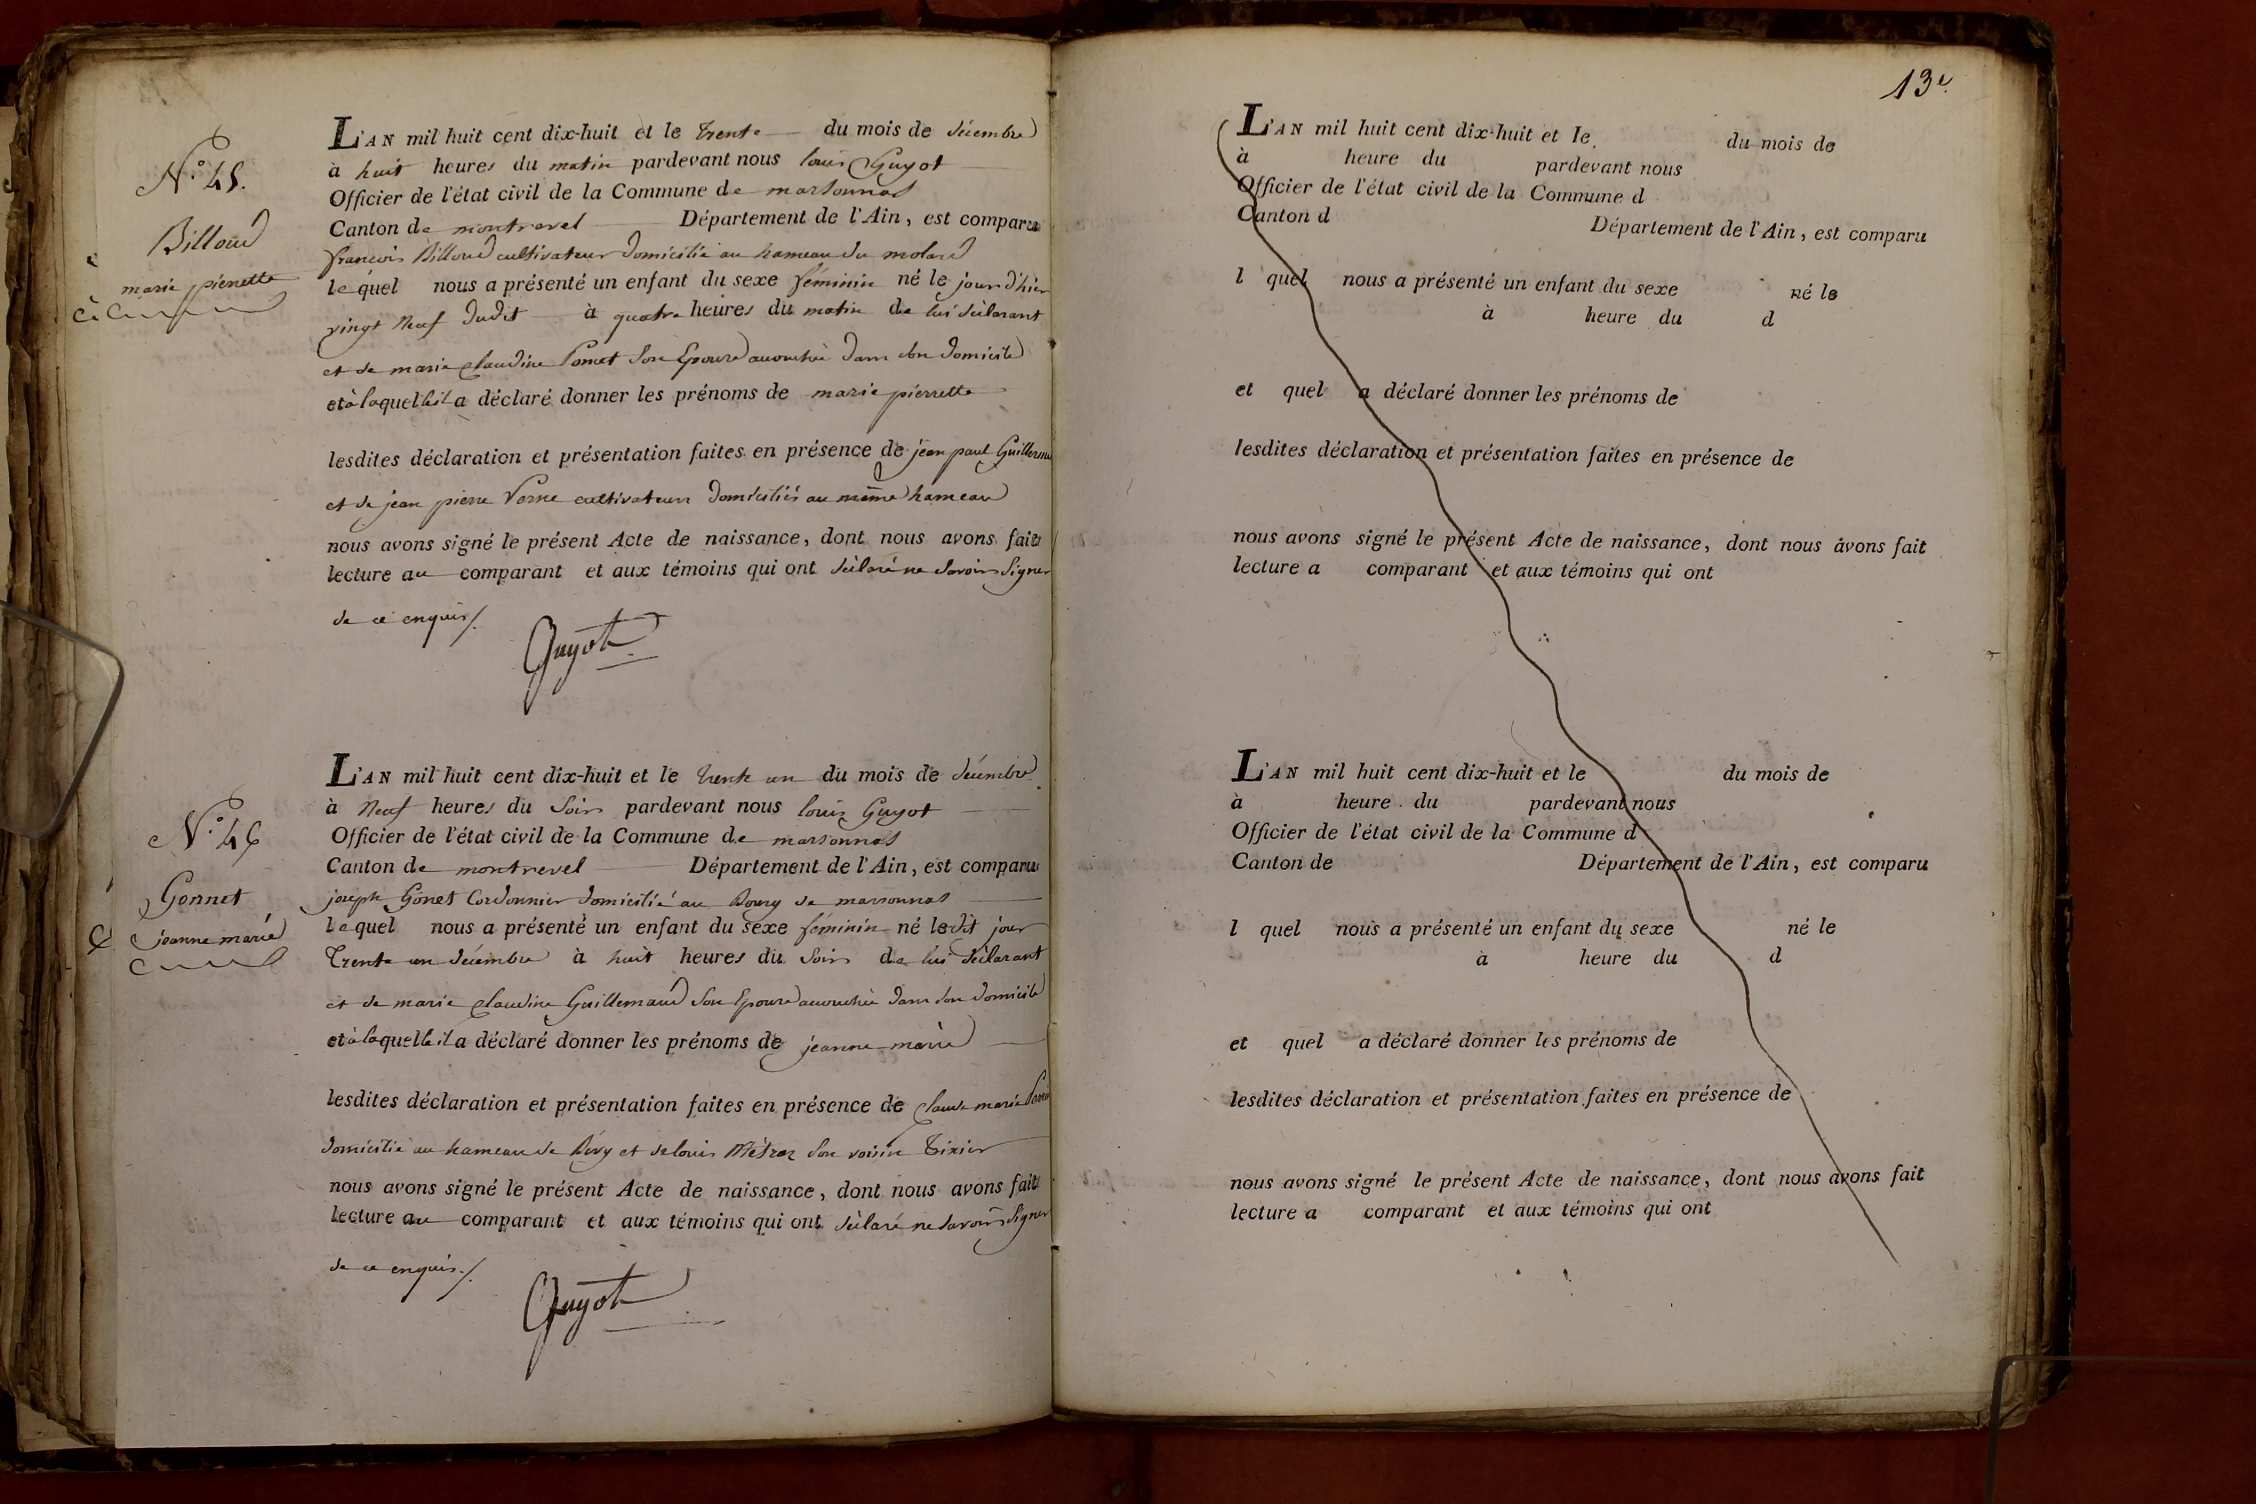 N.° 45.
Billoud
marie pierrette
L'AN mil huit cent dix-huit et le trente du mois de décembre
à huit heures du matin pardevant nous louis Guyot
Officier de l'état civil de la Commune de marsonnas
Canton de montrevel Département de l'Ain, est comparu
francois Billoud cultivateur domicilié au hameau du molard
lequel nous a présenté un enfant du sexe féminin né le jour d'hier
vingt Neuf dudit à quatre heures du matin de lui déclarant
et de marie claudine Pomet son Epouse accouchée dans son domicile
et à laquelle il a déclaré donner les prénoms de marie pierrette
lesdites déclaration et présentation faites en présence de jean paul
et de jean pierre Verne cultivateurs domiciliés au même hameau
nous avons signé le présent Acte de naissance, dont nous avons fait
lecture au comparant et aux témoins qui ont déclaré ne savoir signer
de ce enquis /.
Guyot
N.° 46
Gonnet
jeanne marie
L'AN mil huit cent dix-huit et le trente un du mois de décembre
à Neuf heures du soir pardevant nous louis Guyot
Officier de l'état civil de la Commune de marsonnas
Canton de montrevel Département de l'Ain, est comparu
joseph Gonet Cordonnier domicilié au Bourg de marsonnas
lequel nous a présenté un enfant du sexe féminin né ledit jour
trente un décembre à huit heures du soir de lui déclarant
et de marie claudine Guillemaud son Epouse accouchée dans son domicile
et à laquelle il a déclaré donner les prénoms de jeanne-marie
lesdites déclaration et présentation faites en présence de claude marie
domicilié au hameau de et de louis son voisin tixier
nous avons signé le présent Acte de naissance, dont nous avons fait
lecture au comparant et aux témoins qui ont déclaré ne savoir signer
de ce enquis /.
Guyot
13e.
L'AN mil huit cent dix-huit et le du mois de
à heure du pardevant nous
Officier de l'état civil de la Commune d
Canton d Département de l'Ain, est comparu
l quel nous a présenté un enfant du sexe né le
à heure du d
et quel a déclaré donner les prénoms de
lesdites déclaration et présentation faites en présence de
nous avons signé le présent Acte de naissance, dont nous avons fait
lecture a comparant et aux témoins qui ont
L'AN mil huit cent dix-huit et le du mois de
à heure du pardevant nous
Officier de l'état civil de la Commune d
Canton de Département de l'Ain, est comparu
l quel nous a présenté un enfant du sexe né le
à heure du d
et quel a déclaré donner les prénoms de
lesdites déclaration et présentation faites en présence de
nous avons signé le présent Acte de naissance, dont nous avons fait
lecture a comparant et aux témoins qui ont